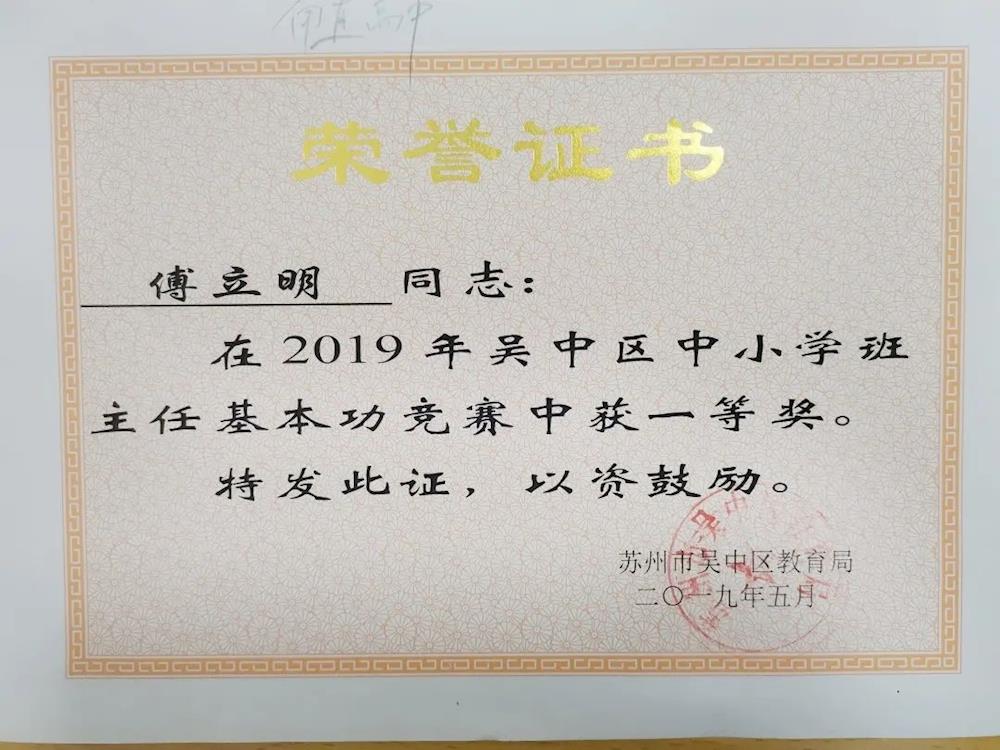 甪直高中
荣誉证书
傅立明 同志：
在2019年吴中区中小学班
主任基本功竞赛中获一等奖。
特发此证，以资鼓励。
苏州市吴中区教育局
二〇一九年五月